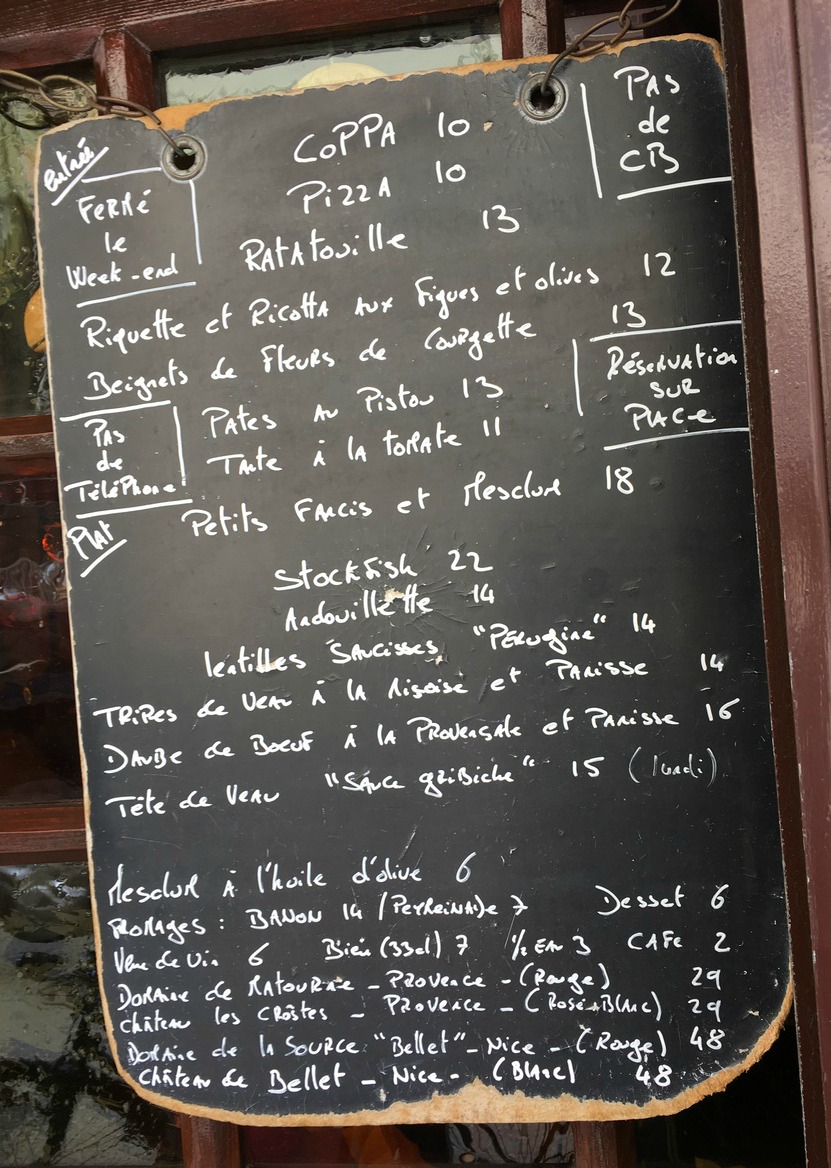 entrée
FERMÉ
le
Week-end
COPPA 10
PIZZA 10
RATATouille 13
PAS
de
CB
Riquette et RicoTTA AUX Figues et olives 12
Beignets de Fleurs de Courgette 13
RéseRVATion
SUR
PLACe
PATes AU PisTou 13
TARte à lA toMATe 11
PAS
de
TéléPhone!
PetiTs FARcis et MescluN 18
PlAT
StockFish 22
ANdouilleTTe 14
lentilles SAUCisses "PeRugine" 14
TRiPes de VeAU à lA Niçoise et PANisse 14
DAUBe de BoeuF à lA PROVenÇAle et PANisse 16
Tête de VeAU "SAUce gRiBiche" 15 (lundi)
MescluN à l'huile d'olive 6
FROMAges : BANON 14 / PeyReiNAde 7 Desset 6
VeRRe de Vin 6 BieR (33cl) 7 ½ EAU 3 CAFé 2
DomAine de RATouRNe - PROVence - (Rouge) 29
Château les CRôstes - PROVence - (Rosé-BlANc) 29
DomAine de lA SOURCe "Bellet" - Nice - (Rouge) 48
Château de Bellet - Nice - (BlANc) 48